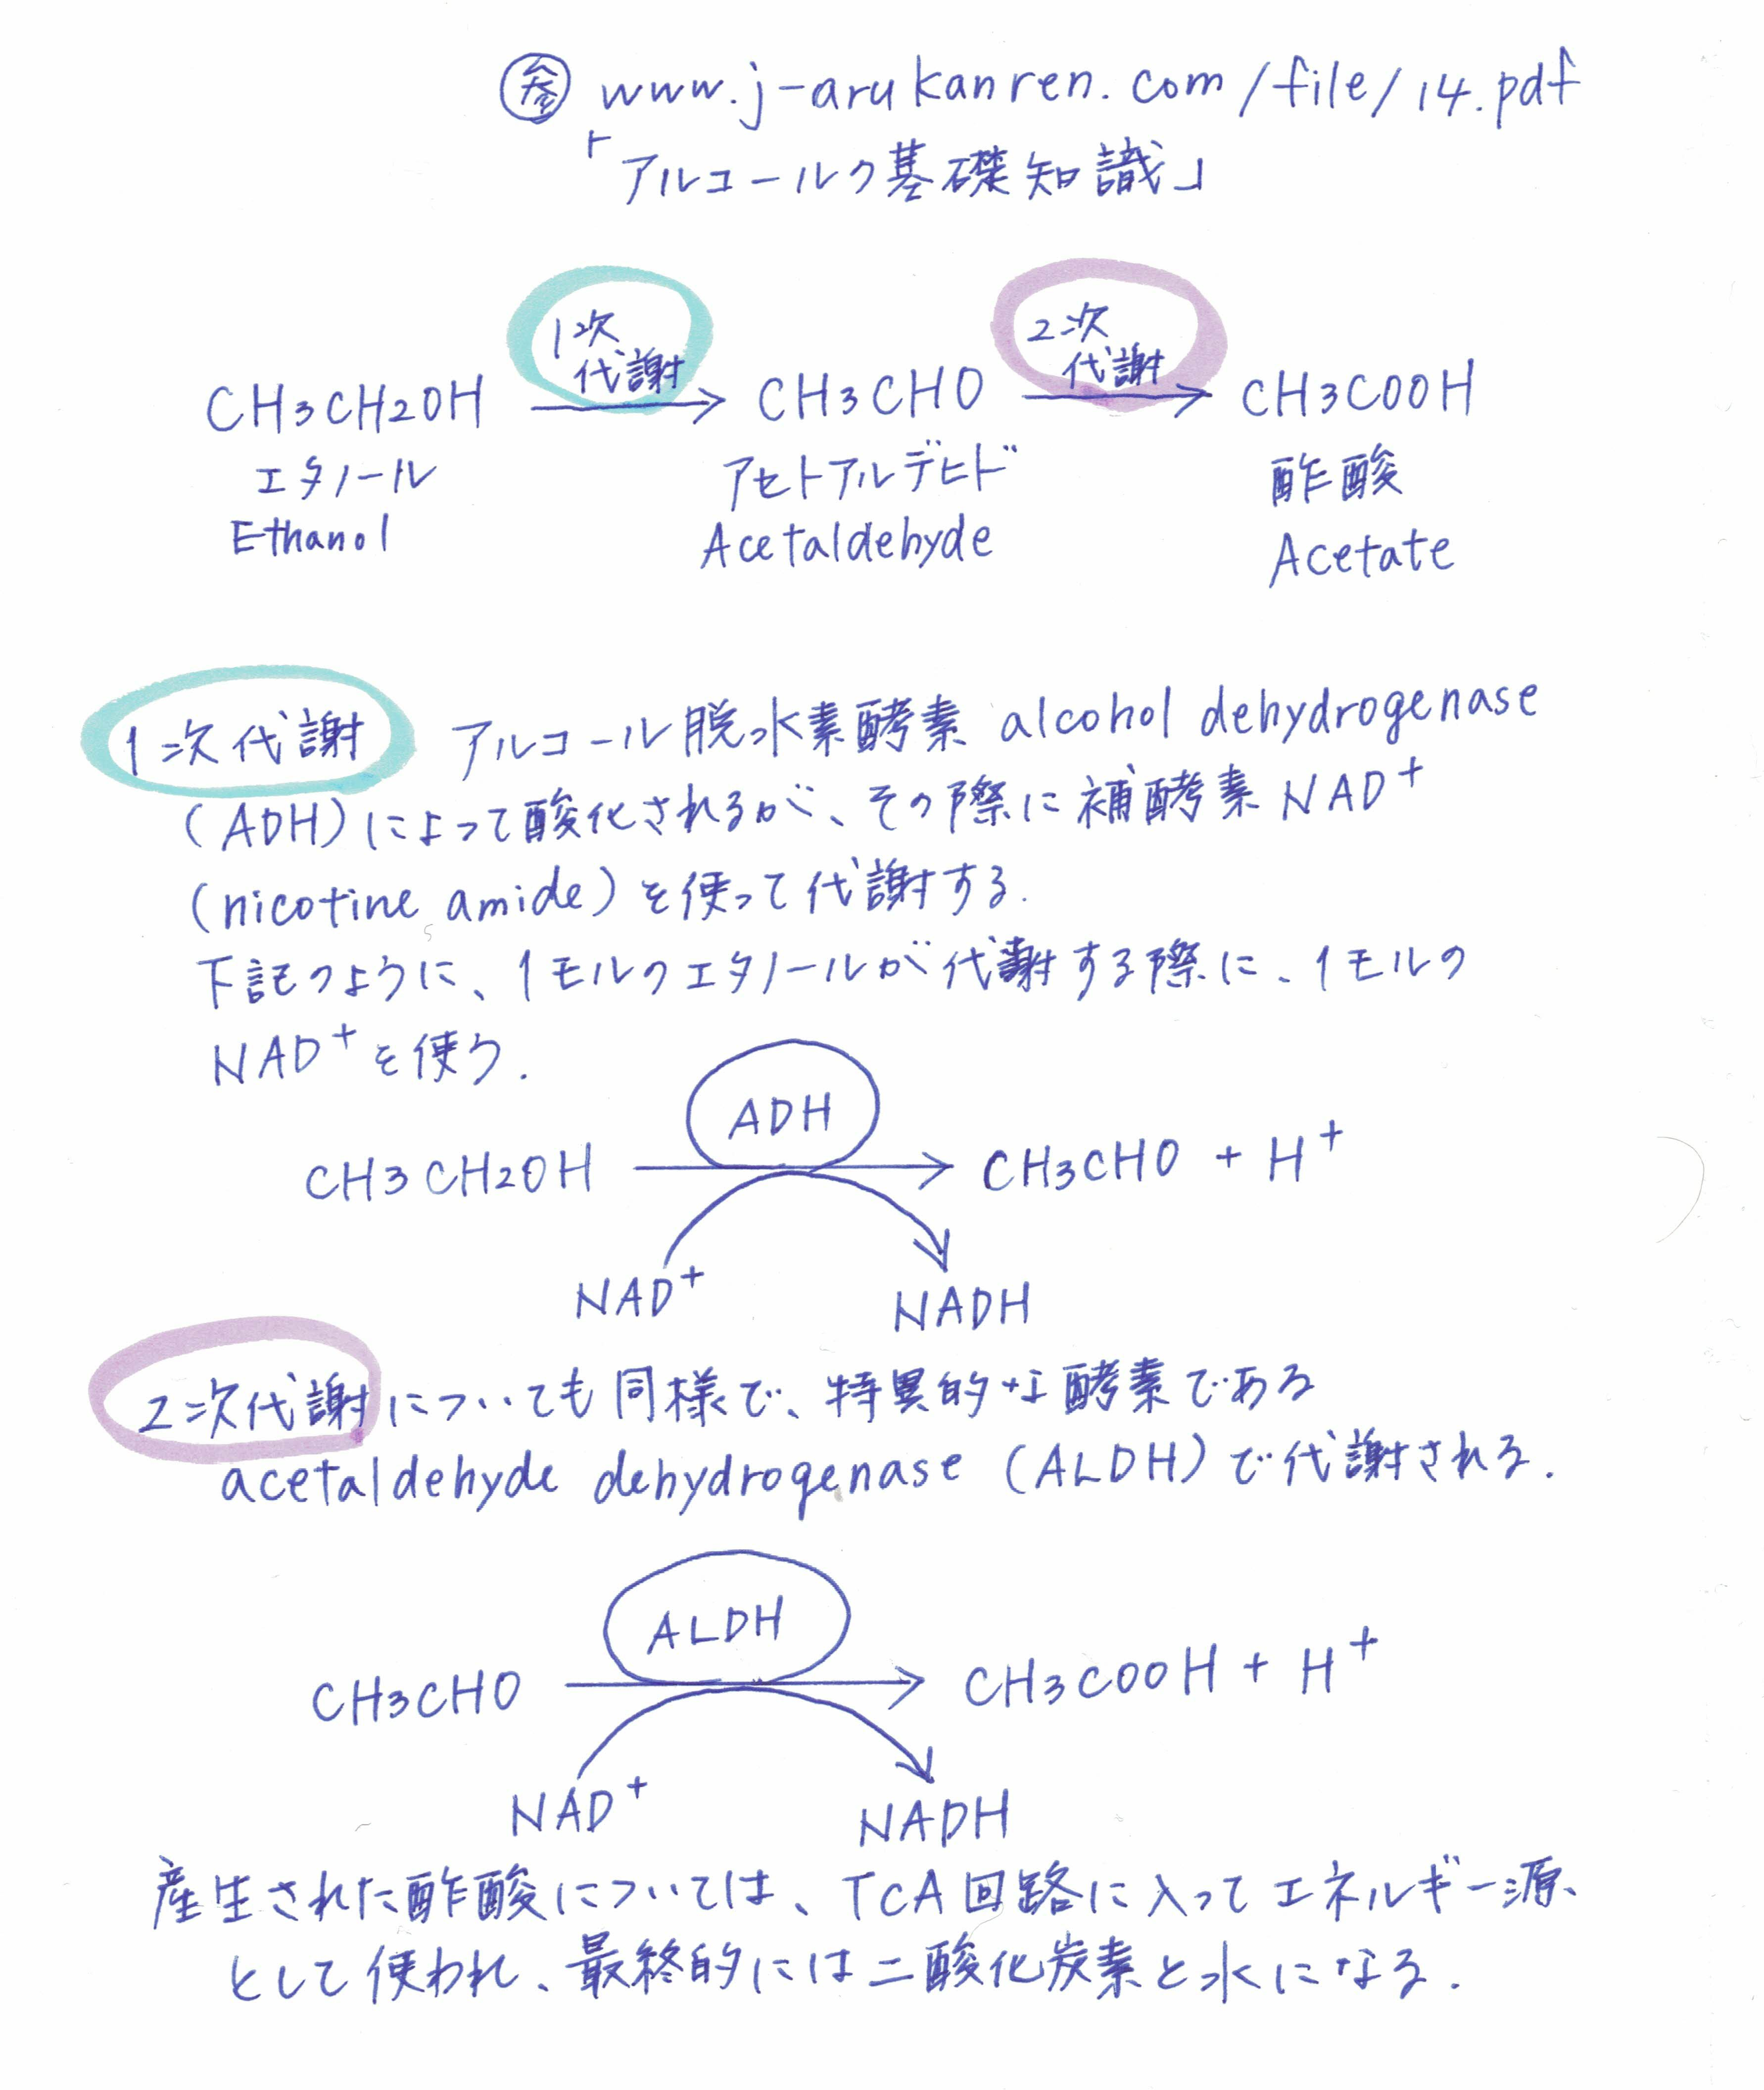 参 www.j-arukanren.com/file/14.pdf
「アルコールの基礎知識」
1次
代謝
2次
代謝
CH3CH2OH → CH3CHO → CH3COOH
エタノール アセトアルデヒド 酢酸
Ethanol Acetaldehyde Acetate
1次代謝 アルコール脱水素酵素 alcohol dehydrogenase
(ADH)によって酸化されるが、その際に補酵素NAD+
(nicotine amide)を使って代謝する.
下記のように、1モルのエタノールが代謝する際に、1モルの
NAD+を使う.
ADH
CH3CH2OH → CH3CHO + H+
NAD+ NADH
2次代謝についても同様で、特異的な酵素である
acetaldehyde dehydrogenase (ALDH)で代謝される.
ALDH
CH3CHO → CH3COOH + H+
NAD+ NADH
産生された酢酸については、TCA回路に入ってエネルギー源、
として使われ、最終的には二酸化炭素と水になる.